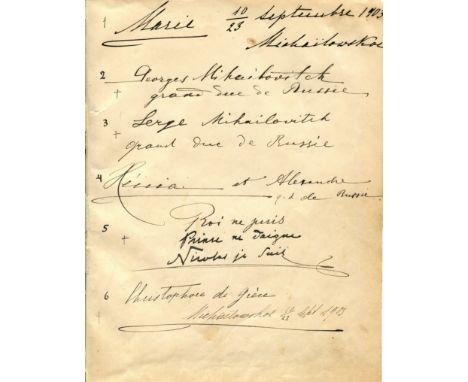 1 Marie 10/23 Septembre 1903
Michaïlowskoe
2 Georges Mikhailovitch
+ grand duc de Russie
3 Serge Mikhailovitch
+ grand duc de Russie
4 Xénia et Alexandre
g. d. de Russie
5 Roi ne puis
+ Prince ne daigne
Nicolas je suis
6 Christophore de Grèce
Michailowskoe Sept 1903